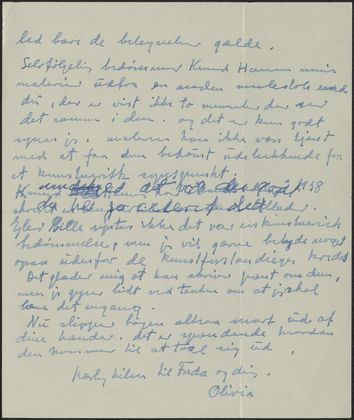 lad bare de betegnelser gælde.
Selvfølgelig bedømmer Knud Hansen mine
malerier udfra en anden målestok end
du, der er vist ikke to mennesker der ser
det samme i dem. og det er kun godt
synes jeg, maleren kan ikke være tjent
med at faa dem bedømt udelukkende fra
et kunstnerisk synspunkt.
1958
Ejler Bille syntes ikke det var en kunstnerisk
bedømmelse, men jeg vil gerne betyde noget
ogsaa udenfor de kunstforstandiges kreds
Det glæder mig at kan skrive pænt om dem,
men jeg gyser lidt ved tanken om at jeg skal
læse det engang.
Nu slipper bogen altsaa snart ud af
dine hænder. det er spændende hvordan
den kommer til at tage sig ud.
kærlig hilsen til Frida og dig.
Olivia